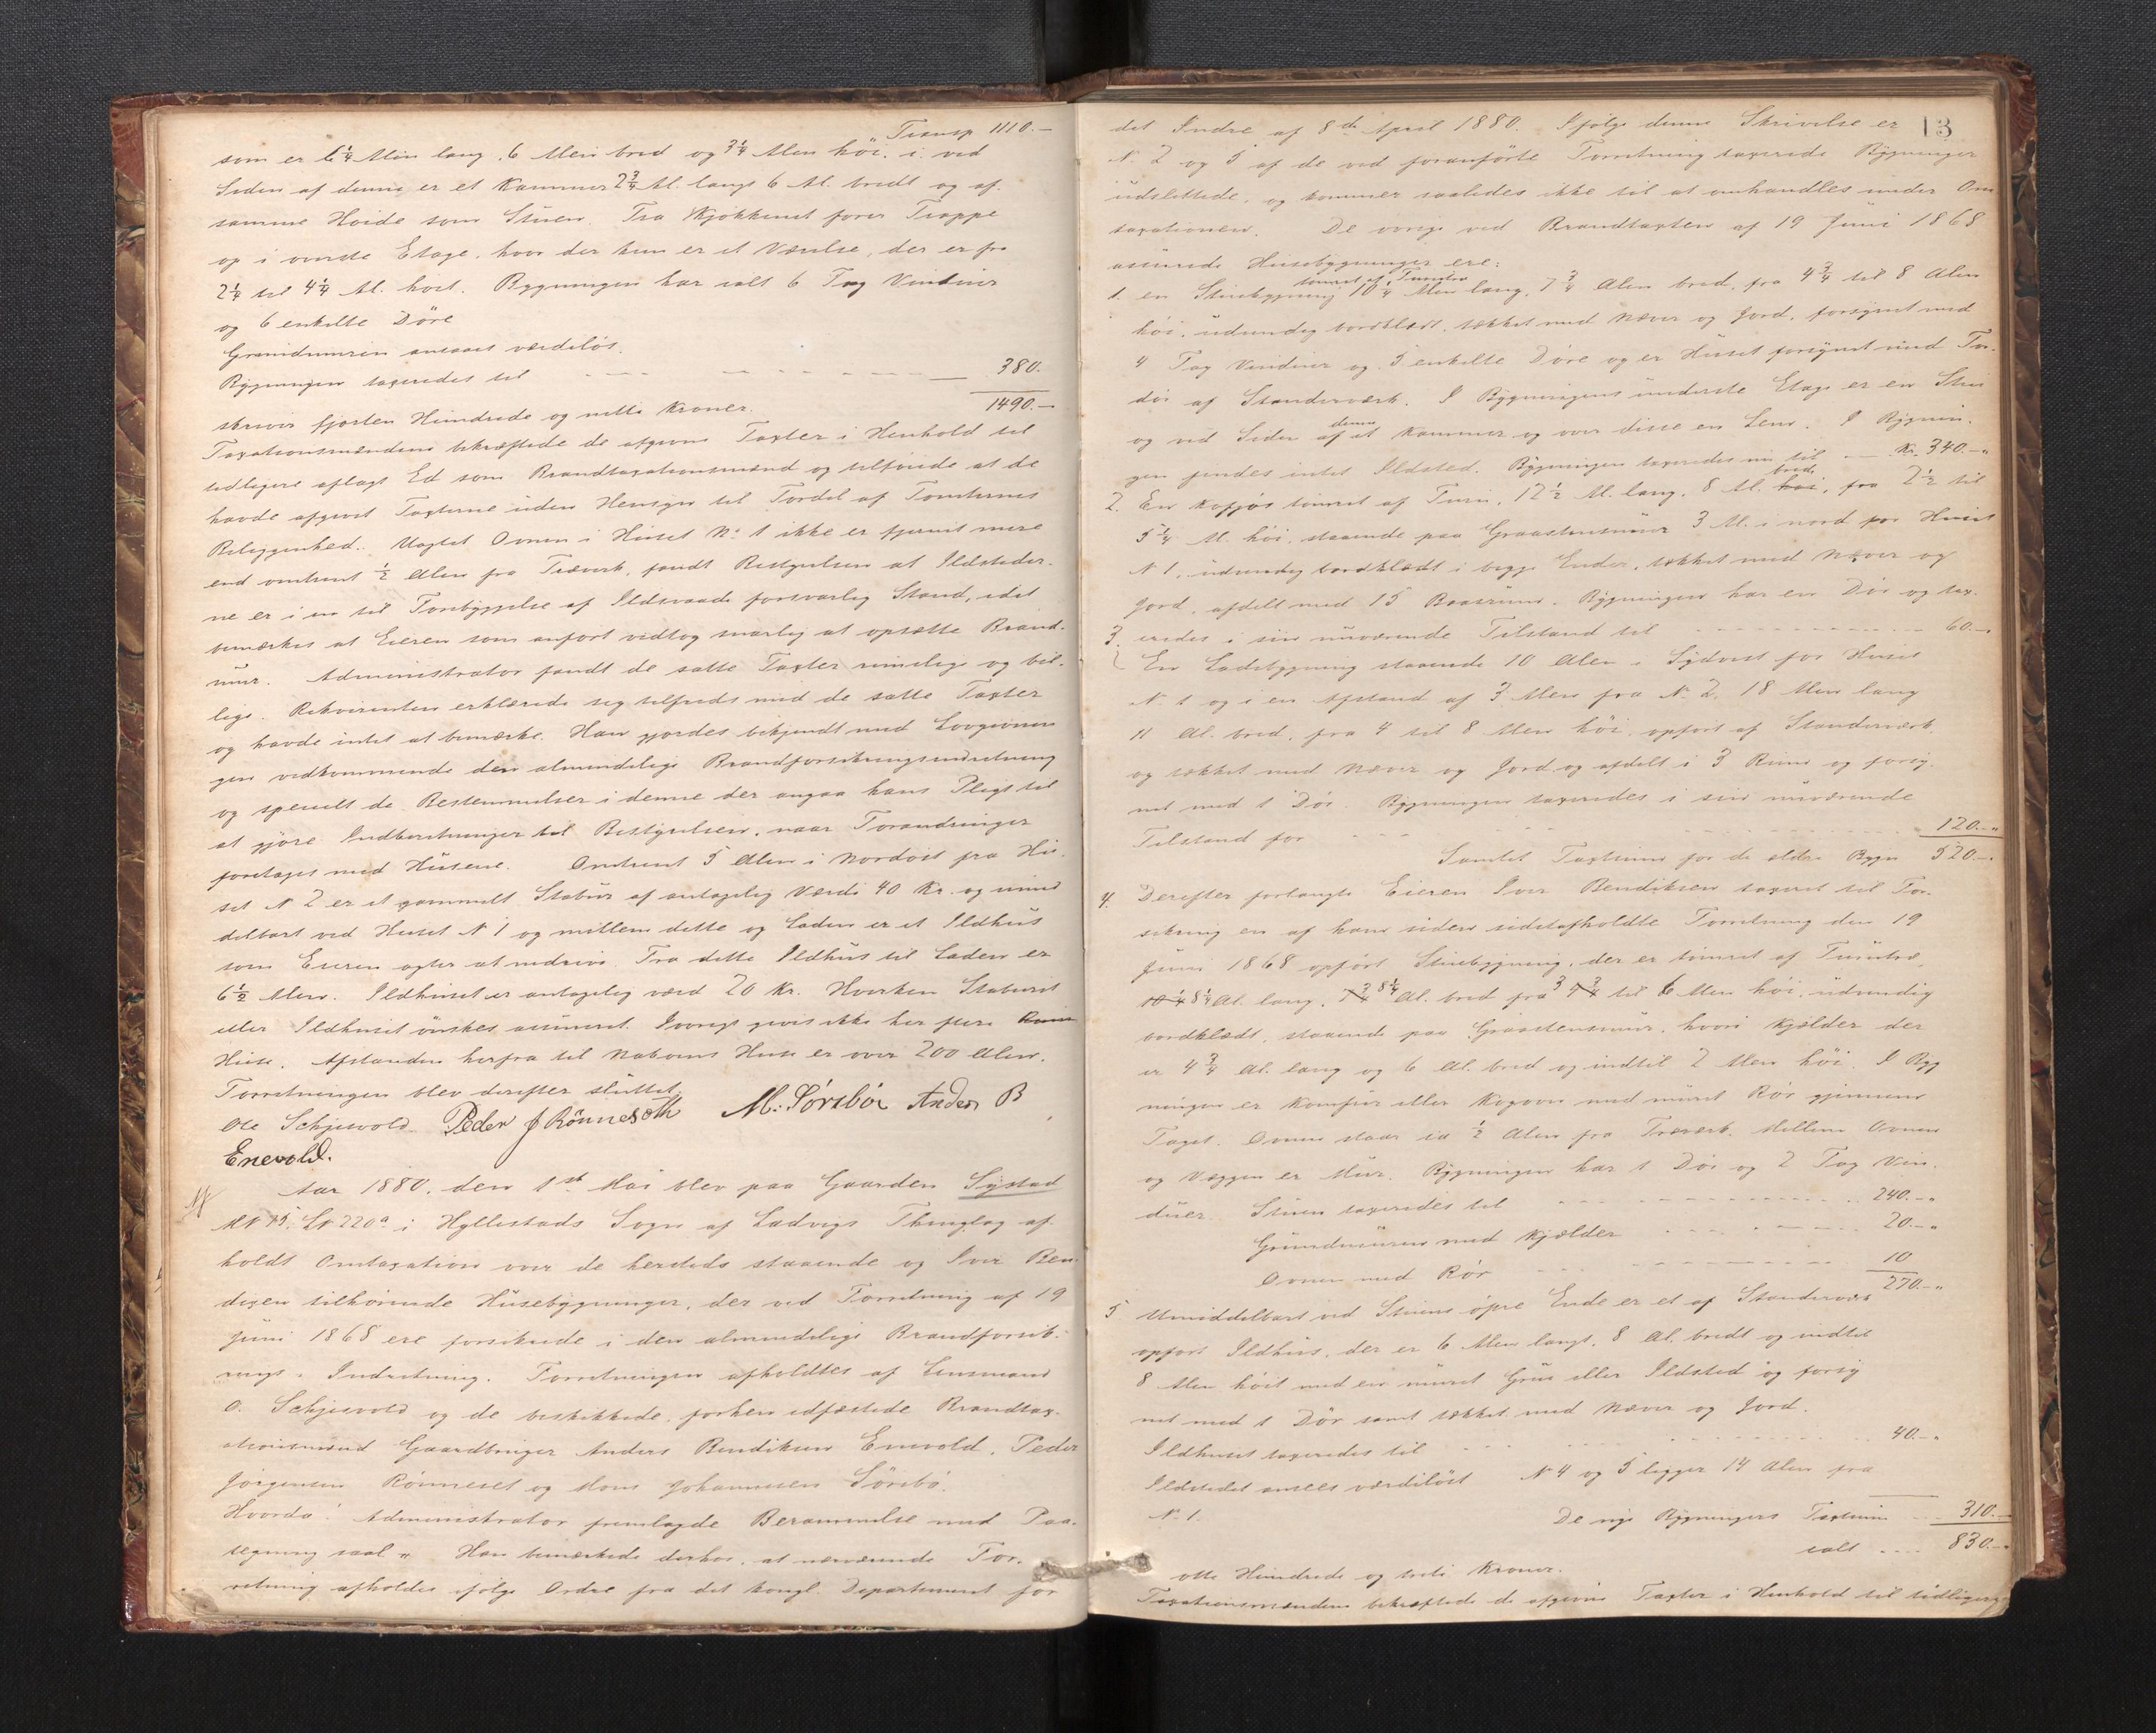 Transp. 1110.-
som er 6 1/4 Alen lang, 6 Alen bred og 3 1/4 Alen höi, i ved
Siden af denne er et Kammer 2 3/4 Al. langt 6 Al. bredt og af
samme Høide som Stuen. Fra Kjøkkenet fører Trappe
op i øverste Etage, hvor der kun er et Værelse, der er fra
2 1/4 til 4 1/4 Al. høit. Bygningen har ialt 6 Fag Vinduer
og 6 enkelte Döre
Grundmuren ansaaes værdiløs.
Bygningen taxeredes til 380.
1490.-
skriver fjorten Hundrede og nitti Kroner.
Taxationsmændene bekræftede de afgivne Taxter i Henhold til
tidligere aflagt Ed som Brandtaxationsmænd og tilføiede at de
havde afgivet Taxterne uden Hensyn til Fordel af Tomternes
Beliggenhed. Uagtet Ovnen i Huset No 1 ikke er fjernet mere
end omtrent 1/2 Alen fra Træværk, fandt Bestyrelsen at Ildstеder-
ne er i en til Forebyggelse af Ildsvaade forsvarlig Stand, idet
bemærkes at Eieren som anført vedtog snarlig at opsætte Brand-
mur. Administrator fandt de satte Taxter rimelige og bil-
lige. Rekvirenten erklærede sig tilfreds med de satte Taxter
og havde intet at bemærke. Han gjordes bekjendt med Lovgivnin-
gen vedkommende den almindelige Brandforsikringsindretning
og specielt de Bestemmelser i denne der angaa hans Pligt til
at gjöre Indberetninger til Bestyrelsen, naar Forandringer
foretages med Husene. Omtrent 5 Alen i Nordost fra Hu-
set N 2 er et gammelt Stabur af antagelig Værdi 40 Kr. og umid
delbart ved Huset N 1 og mellem dette og Laden er et Ildhus
som Eieren agter at nedrive. Fra dette Ildhus til Laden er
6 1/2 Alen. Ildhuset er antagelig værd 20 Kr. Hverken Staburet
eller Ildhuset önskes assureret. Iøvrigt gives ikke her flere
Huse. Afstanden herfra til Naboens Huse er over 200 Alen.
Forretningen blev derefter sluttet.
Ole Schjesvold Peder J Rönneseth M. Sörebö Anders B
Enevold.
Aar 1880, den 1st Mai blev paa Gaarden Systad
MN 75. LN 220a i Hyllestads Sogn af Ladvigs Thinglag af-
holdt Omtaxation over de hersteds staaende og Iver Ben-
dixen tilhørende Husebygninger, der ved Forretning af 19
Juni 1868 ere forsikrede i den almindelige Brandforsik-
rings-Indretning. Forretningen afholdtes af Lensmand
O. Schjesvold og de beskikkede, forhen edfæstede Brandtax-
ationsmænd Gaardbruger Anders Bendiksen Enevold, Peder
Jørgensen Rönneset og Mons Johannesen Sörebö.
Hvorda: Administrator fremlagde Berammelse med Paa-
tegning saal " Han bemærkede derhos, at nærværende For-
retning afholdes ifölge Ordre fra det kongl. Departement for
13
det Indre af 8de April 1880. Ifølge denne Skrivelse er
N. 2 og 5 af de ved foranførte Forretning taxerede Bygninger
udslettede, og kommer saaledes ikke til at omhandles under Om
taxationen. De øvrige ved Brandtaxten af 19 Juni 1868
assurede Husebygninger ere:
tömret af Furutræ
1. en Stuebygning 10 1/4 Alen lang, 7 3/4 Alen bred, fra 4 3/4 til 8 Alen
höi, udvendig bordklædt, tækket med Næver og Jord, forsynet med
4 Fag Vinduer og 5 enkelte Döre og er Huset forsynet med For-
dør af Standerværk. I Bygningens underste Etage er en Stue
og ved Siden af denne et Kammer og over disse en Lem. I Bygnin-
gen findes intet Ildsted. Bygningen taxeredes nu til Kr. 340.-"
2. En Kofjøs tömret af Furu, 12 1/2 Al. lang, 8 Al. höi bred, fra 2 1/2 til
5 1/4 Al. höi, staaende paa Graastensmuur 3 Al. i nord for Huset
N 1, udvendig bordklædt i begge Ender, tækket med Næver og
Jord, afdelt med 15 Baasrum. Bygningen har en Dör og tax-
eredes i sin nuværende Tilstand til 60.-"
3. En Ladebygning staaende 10 Alen i Sydvest for Huset
N 1 og i en Afstand af 3 Alen fra N. 2, 18 Alen lang
11 Al. bred, fra 4 til 8 Alen höi, opført af Standerværk
og tækket med Næver og Jord og afdelt i 3 Rum og forsy-
net med 1 Dör. Bygningen taxeredes i sin nuværende
Tilstand for 120.-"
Samlet Taxtsum for de ældre Bygn 520.-"
4. Derefter forlangte Eieren Iver Bendiksen taxeret til For-
sikring en af ham siden sidstafholdte Forretning den 19
Juni 1868 opført Stuebygning, der er tömret af Furutræ,
10 1/4 8 1/4 Al. lang, 7 3/4 8 1/4 Al. bred fra 3 4 3/4 til 6 Alen höi, udvendig
bordklædt, staaende paa Graastensmur, hvori Kjælder der
er 4 3/4 Al. lang og 6 Al. bred og indtil 2 Alen höi. I Byg
ningen er Komfur eller Kogeovn med muret Rör gjennem
Taget. Ovnen staar ca 1/2 Alen fra Træværk. Mellem Ovnen
og Væggen er Mur. Bygningen har 1 Dör og 2 Fag Vin-
duer. Stuen taxeredes til 240.-"
Grundmuren med Kjælder 20.-"
Ovnen med Rör 10
270.-"
5 Umiddelbart ved Stuens öpre Ende er et af Standerværk
opfört Ildhus, der er 6 Alen langt, 8 Al. bredt og indtil
8 Alen höit med en muret Grue eller Ildsted og forsy
net med 1 Dör samt tækket med Næver og Jord.
Ildhuset taxeredes til 40.-"
Ildstedet ansees værdilöst N 4 og 5 ligger 14 Alen fra
N. 1.
De nye Bygningers Taxtsum 310.-
ialt 830.-"
otte Hundrede og treti Kroner.
Taxationsmændene bekræftede de afgivne Taxter i Henhold til tidligere